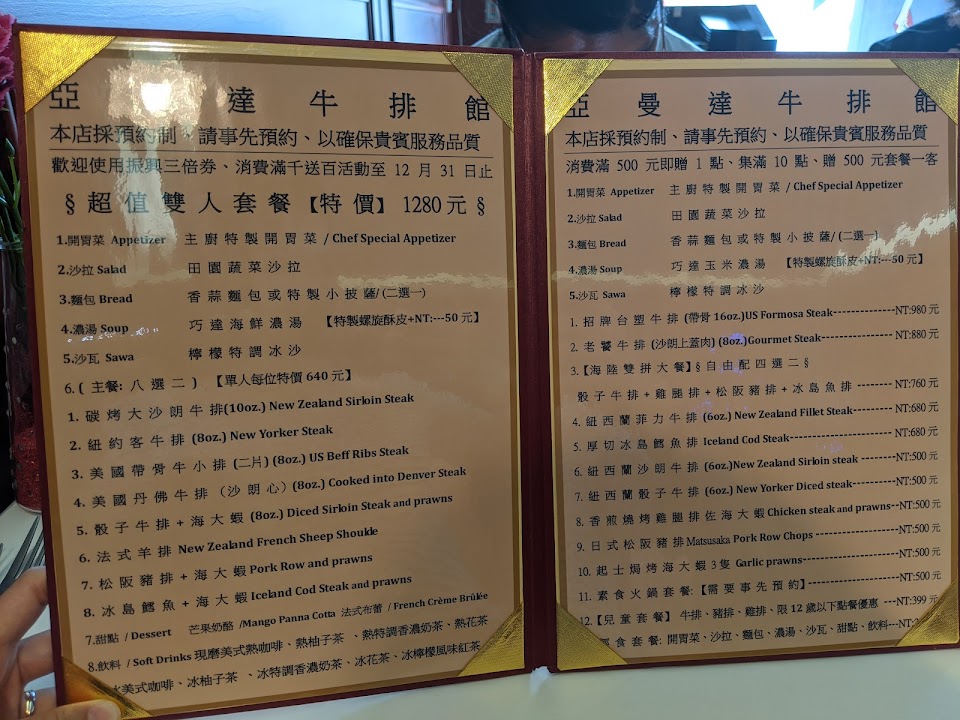 亞 達 牛 排 館
本店採預約制、請事先預約、以確保貴賓服務品質
歡迎使用振興三倍券、消費滿千送百活動至 12 月 31 日止
§ 超 值 雙 人 套 餐 【特 價】 1280 元 §
1.開胃菜 Appetizer 主 廚 特 製 開 胃 菜 / Chef Special Appetizer
2.沙拉 Salad 田 園 蔬 菜 沙 拉
3.麵包 Bread 香 蒜 麵 包 或 特 製 小 披 薩/ (二選一)
4.濃湯 Soup 巧 達 海 鮮 濃 湯 【特製螺旋酥皮+NT:---50 元】
5.沙瓦 Sawa 檸 檬 特 調 冰 沙
6.( 主餐: 八 選 二 ) 【單人每位特價 640 元】
1. 碳 烤 大 沙 朗 牛 排(10oz.) New Zealand Sirloin Steak
2. 紐 約 客 牛 排 (8oz.) New Yorker Steak
3. 美 國 帶 骨 牛 小 排 (二片) (8oz.) US Beff Ribs Steak
4. 美 國 丹 佛 牛 排 （沙 朗 心）(8oz.) Cooked into Denver Steak
5. 骰 子 牛 排 + 海 大 蝦 (8oz.) Diced Sirloin Steak and prawns
6. 法 式 羊 排 New Zealand French Sheep Shoukle
7. 松 阪 豬 排 + 海 大 蝦 Pork Row and prawns
8. 冰 島 鱈 魚 + 海 大 蝦 Iceland Cod Steak and prawns
7.甜點 / Dessert 芒果奶酪 /Mango Panna Cotta 法式布蕾 / French Crème Brûkée
8.飲料 / Soft Drinks 現磨美式熱咖啡、熱柚子茶 、熱特調香濃奶茶、熱花茶
冰美式咖啡、冰柚子茶 、冰特調香濃奶茶、冰花茶、冰檸檬風味紅茶
亞 曼 達 牛 排 館
本店採預約制、請事先預約、以確保貴賓服務品質
消費滿 500 元即贈 1 點、集滿 10 點、贈 500 元套餐一客
1.開胃菜 Appetizer 主 廚 特 製 開 胃 菜 / Chef Special Appetizer
2.沙拉 Salad 田 園 蔬 菜 沙 拉
3.麵包 Bread 香 蒜 麵 包 或 特 製 小 披 薩/ (二選一)
4.濃湯 Soup 巧 達 玉 米 濃 湯 【特製螺旋酥皮+NT:---50 元】
5.沙瓦 Sawa 檸 檬 特 調 冰 沙
1. 招 牌 台 塑 牛 排 (帶骨 16oz.)US Formosa Steak--------------NT:980 元
2. 老 饕 牛 排 (沙朗上蓋肉) (8oz.)Gourmet Steak--------------NT:880 元
3.【海 陸 雙 拼 大 餐】§ 自 由 配 四 選 二 §
骰 子 牛 排 + 雞 腿 排 + 松 阪 豬 排 + 冰 島 魚 排 --------NT:760 元
4. 紐 西 蘭 菲 力 牛 排 (6oz.) New Zealand Fillet Steak--------NT:680 元
5. 厚 切 冰 島 鱈 魚 排 Iceland Cod Steak--------------------NT:680 元
6. 紐 西 蘭 沙 朗 牛 排 (6oz.)New Zealand Sirloin steak --------NT:500 元
7. 紐 西 蘭 骰 子 牛 排 (6oz.) New Yorker Diced steak----------NT:500 元
8. 香 煎 燒 烤 雞 腿 排 佐 海 大 蝦 Chicken steak and prawns--NT:500 元
9. 日 式 松 阪 豬 排 Matsusaka Pork Row Chops ---------------NT:500 元
10. 起 士 焗 烤 海 大 蝦 3 隻 Garlic prawns-------------------NT:500 元
11. 素 食 火 鍋 套 餐:【需 要 事 先 預 約】--------------------NT:500 元
12.【兒 童 套 餐】 牛排、豬排、雞排、限 12 歲以下點餐優惠 ---NT:399 元
食 套 餐: 開胃菜、沙拉、麵包、濃湯、沙瓦、甜點、飲料---NT: